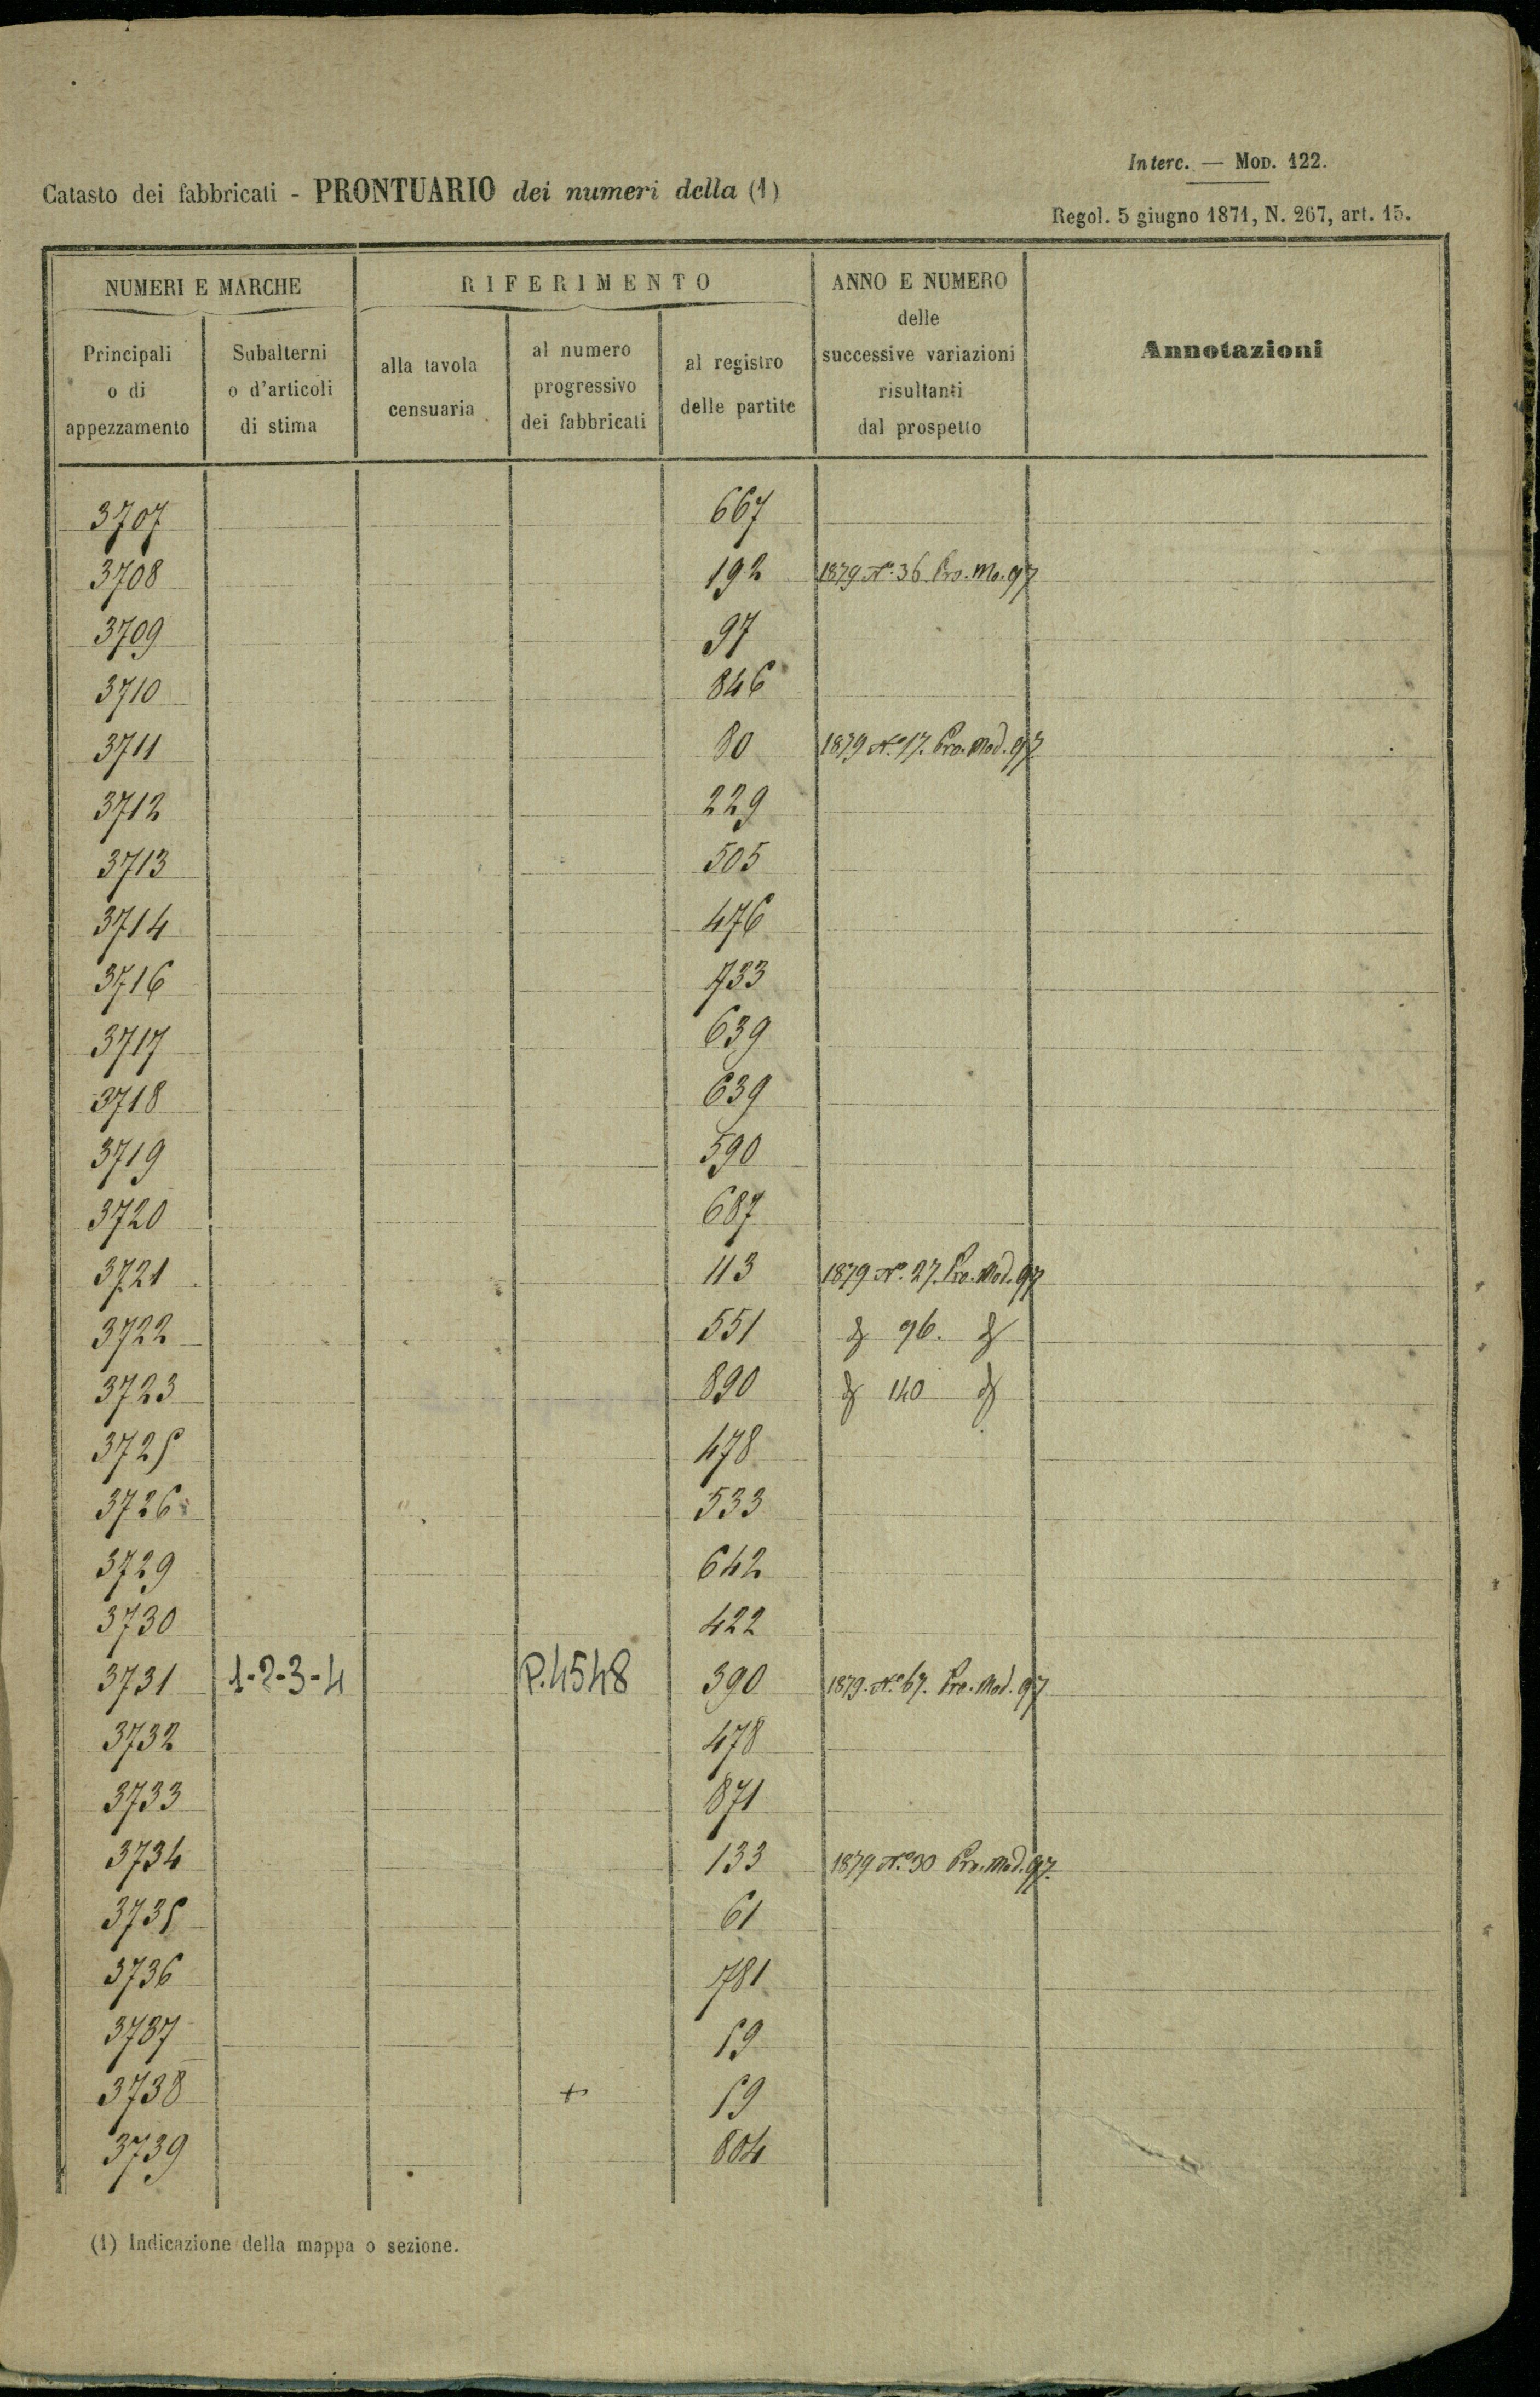 Interc. — Mod. 122.
Catasto dei fabbricati - PRONTUARIO dei numeri della (1)
Regol. 5 giugno 1871, N. 267, art. 15.
NUMERI E MARCHE
RIFERIMENTO
ANNO E NUMERO
delle
successive variazioni
risultanti
dal prospetto
Annotazioni
Principali
o di
appezzamento
Subalterni
o d'articoli
di stima
alla tavola
censuaria
al numero
progressivo
dei fabbricati
al registro
delle partite
3707 667
3708 192 1879 N.° 36 Pro. Mo. 97
3709 97
3710 846
3711 80 1879 N.° 17. Pro. Mod. 97
3712 229
3713 505
3714 476
3716 733
3717 639
3718 639
3719 590
3720 687
3721 113 1879 N.° 27. Pro. Mod. 97
3722 551 96.
3723 890 140
3725 478
3726 533
3729 642
3730 422
3731 1-2-3-4 P.4548 390 1879. N.° 67. Pro. Mod. 97
3732 478
3733 871
3734 133 1879 N.° 30 Pro. Mod. 97.
3735 61
3736 781
3737 59
3738 + 59
3739 804
(1) Indicazione della mappa o sezione.